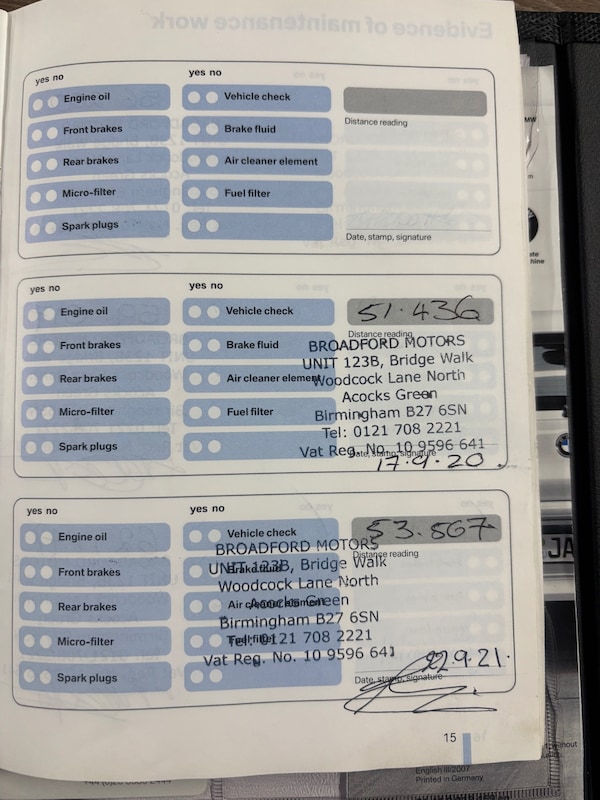 Evidence of maintenance work
yes no
yes no
Engine oil
Vehicle check
Front brakes
Brake fluid
Distance reading
Rear brakes
Air cleaner element
Micro-filter
Fuel filter
Spark plugs
Date, stamp, signature
yes no
yes no
Engine oil
Vehicle check
51.436
Distance reading
Front brakes
Brake fluid
BROADFORD MOTORS
UNIT 123B, Bridge Walk
Rear brakes
Air cleaner element
Woodcock Lane North
Acocks Green
Micro-filter
Fuel filter
Birmingham B27 6SN
Tel: 0121 708 2221
Spark plugs
Vat Reg. No. 10 9596 641
Date, stamp, signature
17.9.20
yes no
yes no
Engine oil
Vehicle check
53.567
BROADFORD MOTORS
Distance reading
Front brakes
Brake fluid
UNIT 123B, Bridge Walk
Woodcock Lane North
Rear brakes
Air cleaner element
Acocks Green
Birmingham B27 6SN
Micro-filter
Fuel filter
Tel: 0121 708 2221
Vat Reg. No. 10 9596 641
22.9.21.
Spark plugs
Date, stamp, signature
15
JA
English III/2007
Printed in Germany